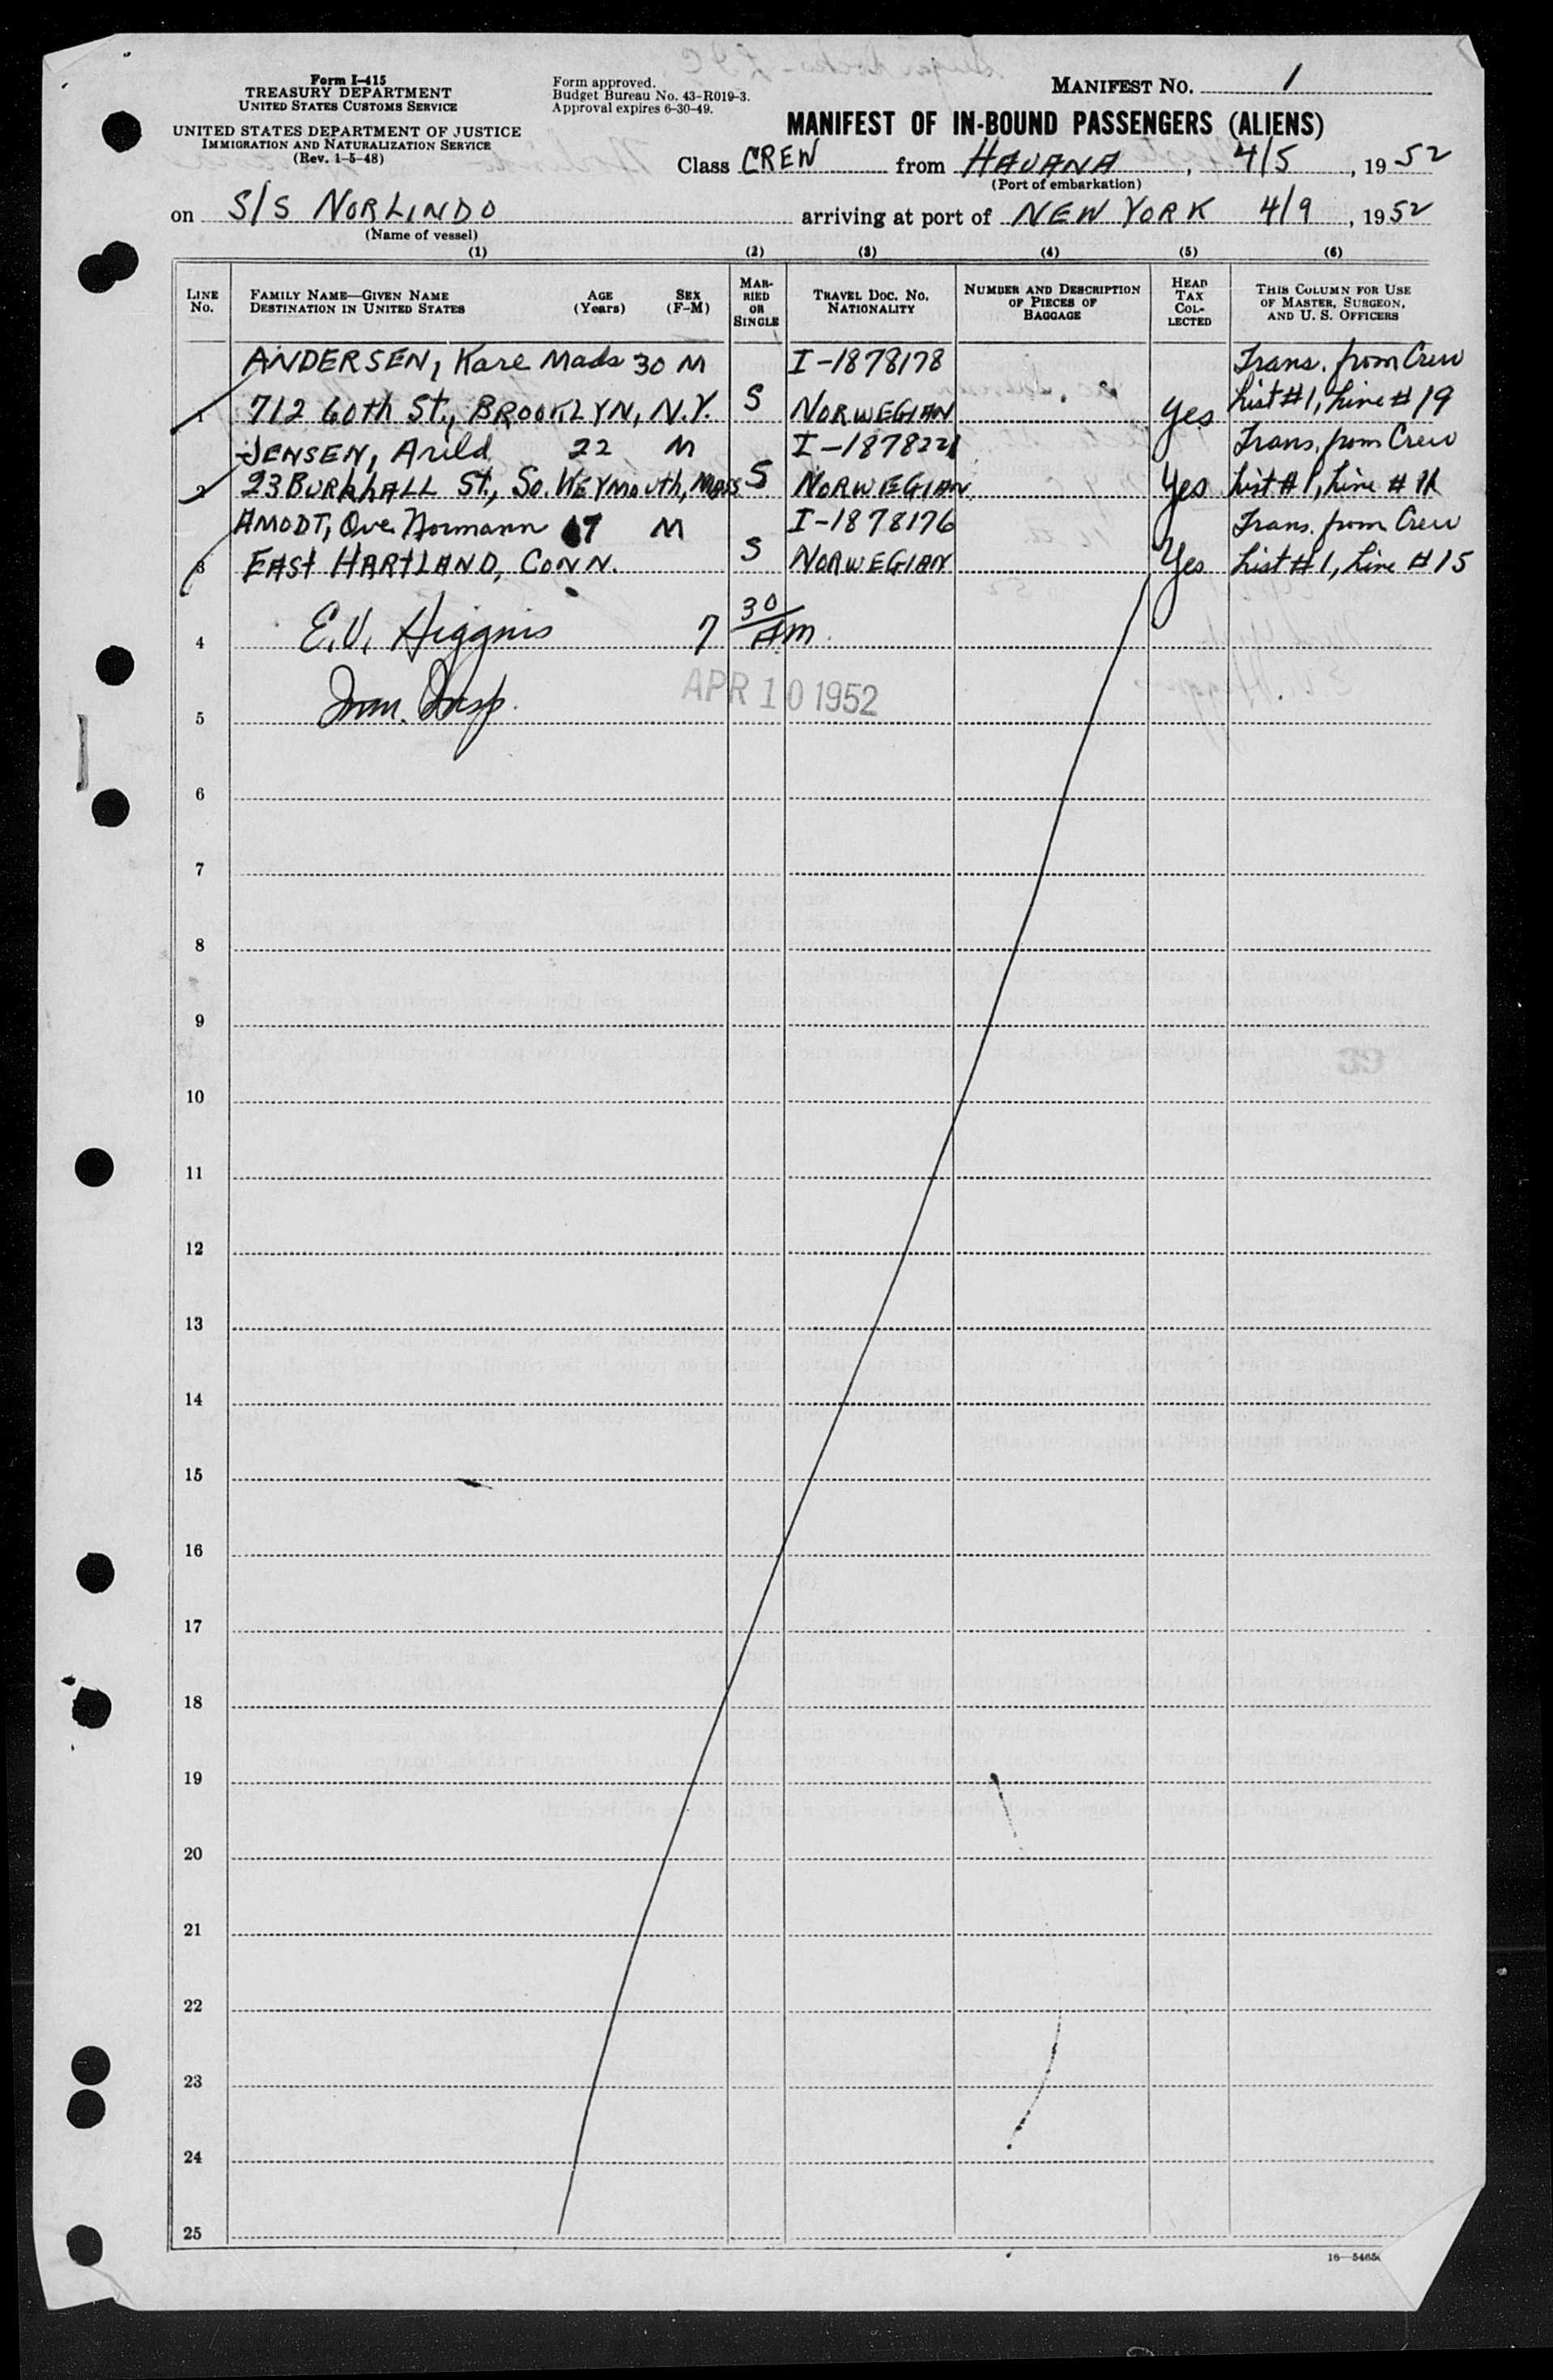 MANIFEST NO. 1
Form I-415
TREASURY DEPARTMENT
UNITED STATES CUSTOMS SERVICE
UNITED STATES DEPARTMENT OF JUSTICE
IMMIGRATION AND NATURALIZATION SERVICE
(Rev. 1-5-48)
Form approved.
Budget Bureau No. 43-R019-3.
Approval expires 6-30-49.
MANIFEST OF IN-BOUND PASSENGERS (ALIENS)
Class CREW from HAVANA, 4/5, 1952
(Port of embarkation)
on S/S NORLINDO arriving at port of NEW YORK 4/9, 1952
(Name of vessel)
(1) (2) (3) (4) (5) (6)
LINE No. FAMILY NAME—GIVEN NAME DESTINATION IN UNITED STATES AGE (Years) SEX (F-M) MARRIED OR SINGLE TRAVEL DOC. NO. NATIONALITY NUMBER AND DESCRIPTION OF PIECES OF BAGGAGE HEAD TAX COLLECTED THIS COLUMN FOR USE OF MASTER, SURGEON, AND U. S. OFFICERS
ANDERSEN, Kare Mads 30 M I-1878178 Trans. from Crew
1 712 60th St., BROOKLYN, N.Y. S NORWEGIAN Yes List #1, Line #19
JENSEN, Arild 22 M I-1878221 Trans. from Crew
2 23 BURKHALL St., So. WEYMOUTH, MASS S NORWEGIAN Yes List #1, Line #
AMODT, Ove Normann 17 M I-1878176 Trans. from Crew
3 EAST HARTLAND, CONN. S NORWEGIAN Yes List #1, Line #15
4 E.V. Higgins 7 30/AM
5 Imm. Insp. APR 10 1952
6
7
8
9
10
11
12
13
14
15
16
17
18
19
20
21
22
23
24
25